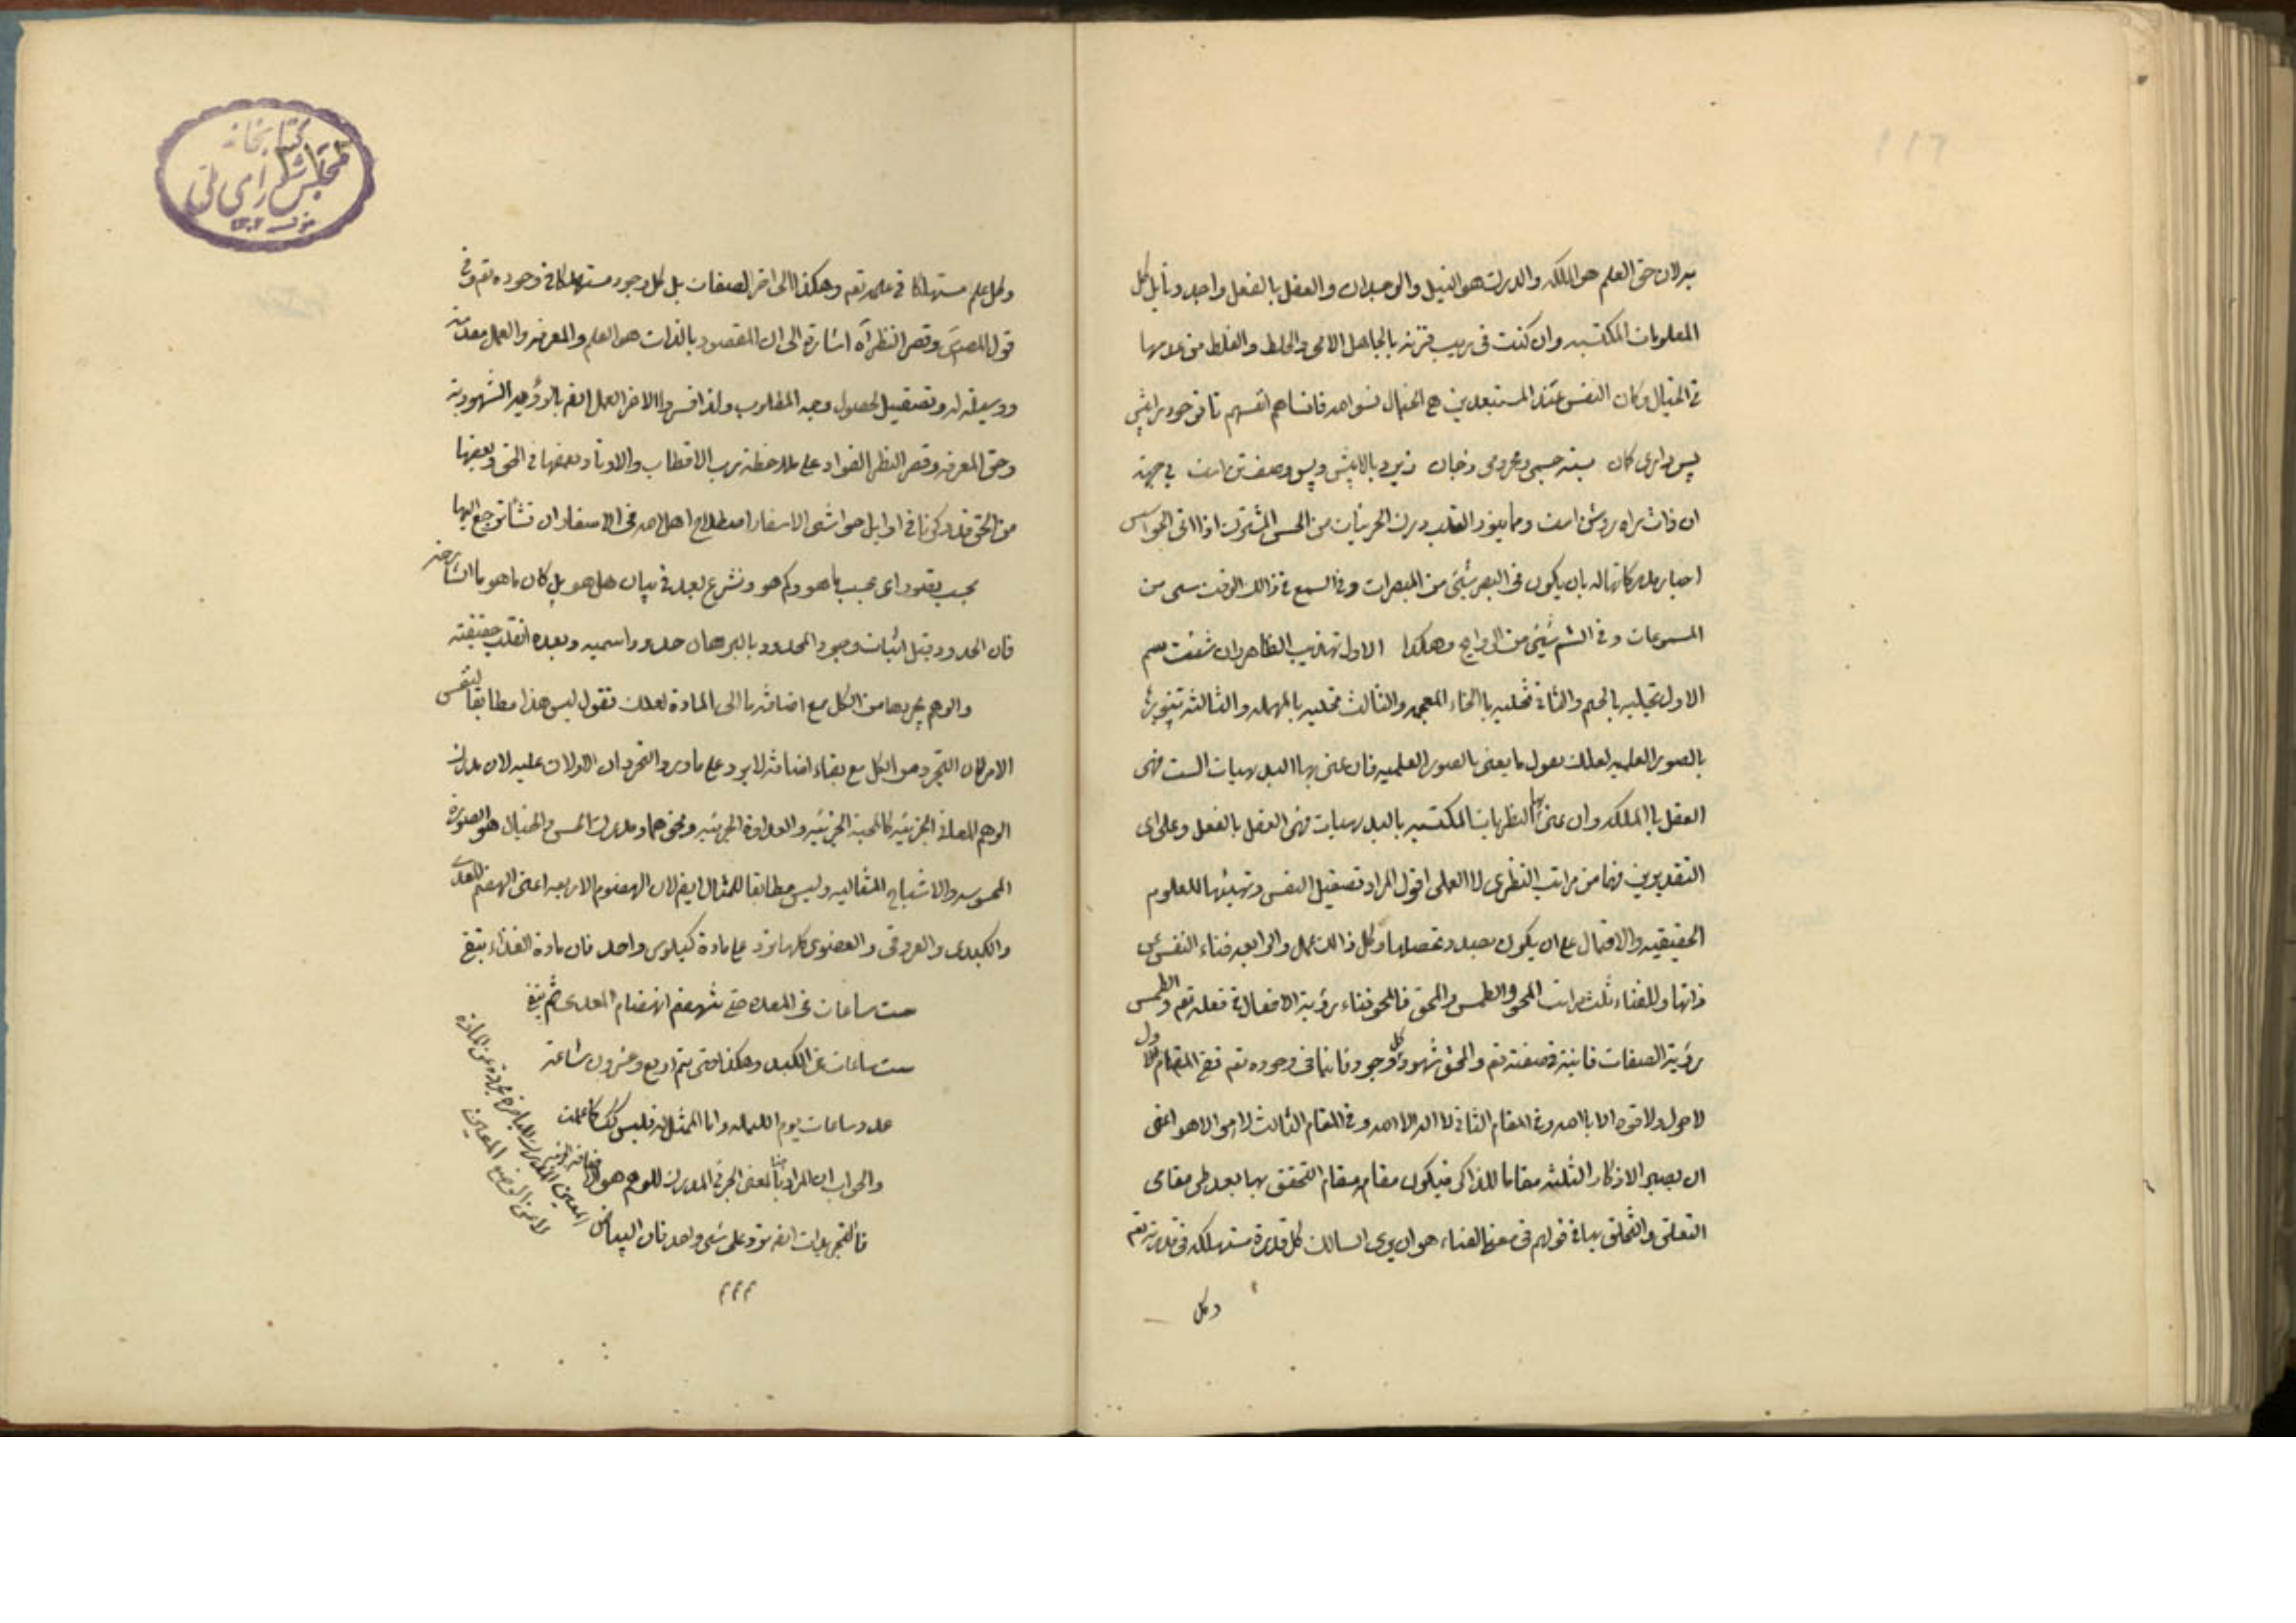 ۱۱۶
لان حق العلم هو الملكه والدرك هو النيل والوجدان والعقل بالفعل واجد ونايل كل
المعلومات المكتسبه وان كنت فى ريب فزنه بالجاهل الامى والخلط والغلط من
فى الخيال وكان النفس عند المستبعدين هى الخيال نسوا الله فانساهم انفسهم تا تو خود را پيش
پس دارى كان بسته جسمى ومحرومى ز جان زير و بالا پيش و پس وصف تن است بى جهت
ان ذات جان روشن است ومما ينور القلب درك الجزئيات من الحس المشترك اذا اتى الحواس
اخبار مدركاتها له بان يكون فى البصر شيئى من المبصرات وفى السمع فى ذالك الوقت شىء من
المسموعات وفى الشم شيئى من الروايح وهكذا الاول تهذيب الظاهر وان شئت سم
الاول تجليه بالجيم والثانى تخليه بالخاء المعجمه والثالث تحليه بالمهمله والثالثه تنويرها
بالصور العلميه لعلك تقول ما يعنى بالصور العلميه فان عنى بها البديهيات الست فهى
العقل بالملكه وان عنى بها النظريات المكتسبه بالبديهيات فهى العقل بالفعل وعلى اى
التقديرين فهما من مراتب النظرى لا العملى اقول المراد تصقيل النفس وتهيئها للعلوم
الحقيقيه والاقبال على ان يكون بصدد تحصيلها وكل ذالك عمل والرابعه فناء النفس عن
ذاتها وللفناء ثلث مراتب المحو والطمس والمحق فالمحو فناء رؤية الافعال فى فعله تعم والطمس
رؤية الصفات فانية فى صفته تعم والمحق شهود كل وجود فانيا فى وجوده تعم ففى المقام الاول
لا حول ولا قوة الا بالله وفى المقام الثانى لا اله الا الله وفى المقام الثالث لا هو الا هو اعنى
ان يصير الاذكار الثلثه مقاما للذاكر فيكون مقامه مقام التحقق بها بعد طى مقامى
التعلق والتخلق بها فى قولهم فى معنى الفناء هو ان يرى السالك كل قدرة مستهلكه فى قدرته تعم
وكل
كتابخانه
مجلس شوراى ملى
وكل علم مستهلكا فى علمه تعم وهكذا الى اخر الصفات بل كل وجود مستهلكا فى وجوده تعم وفى
قول المصنف وقصر النظر آه اشارة الى ان المقصود بالذات هو العلم والمعرفه والعمل مقدمة
ووسيلة له وتصقيل لحصول وجه المطلوب ولذا فسروا الاخر العمل ايضا بالرؤية الشهوديه
وحق المعرفه وقصر النظر الفؤاد على ملاحظة رب الاقطاب والاوتاد بعضها فى الحق وبعضها
من الحق قد ذكرنا فى اوايل حواشى الاسفار اصطلاح اهل الله فى الاسفار ان شئت ارجع اليها
بحسب مقدور اى بحسب ما هو وكم هو ونشرع بعد فى بيان هل هو بل كان ما هو ما الشارحه
فان الحدود قبل اثبات وجود المحدود بالبرهان حدود اسميه وبعده انقلب حقيقيه
والوهم يجردها من الكل مع اضافة ما الى المادة لعلك تقول ليس هذا مطابقا لنفس
الامر كان التجرد من الكل مع بقاء اضافة لا يرد على مادة والتجرد الاولان عليه لان مدرك
الوهم المعانى الجزئيه كالمحبة الجزئيه والعداوة الجزئيه ونحوهما ومدرك الحس والخيال هو الصورة
المحسوسه والاشباح المثاليه وليس مطابقا للمثال ايضا لان الهضوم الاربعه اعنى الهضم المعدى
والكبدى والعروقى والعضوى كلها ترد على مادة كيلوس واحد فان مادة الغذاء يبقى
ست ساعات فى المعدة حتى تنهضم انهضام المعدى ثم يبقى
ست ساعات فى الكبد وهكذا حتى يتم اربع وعشرون ساعة
عدد ساعات يوم الليله واما الممثل له فليس كك كما علمت
والجواب ان المراد بالمعنى الجزئى المدرك للوهم هو
فالتجريدات ايضا ترد على شىء واحد فان البياض
المعين المدرك للباصرة مجردة عن المادة
لا عن الوضع المعين
م م م